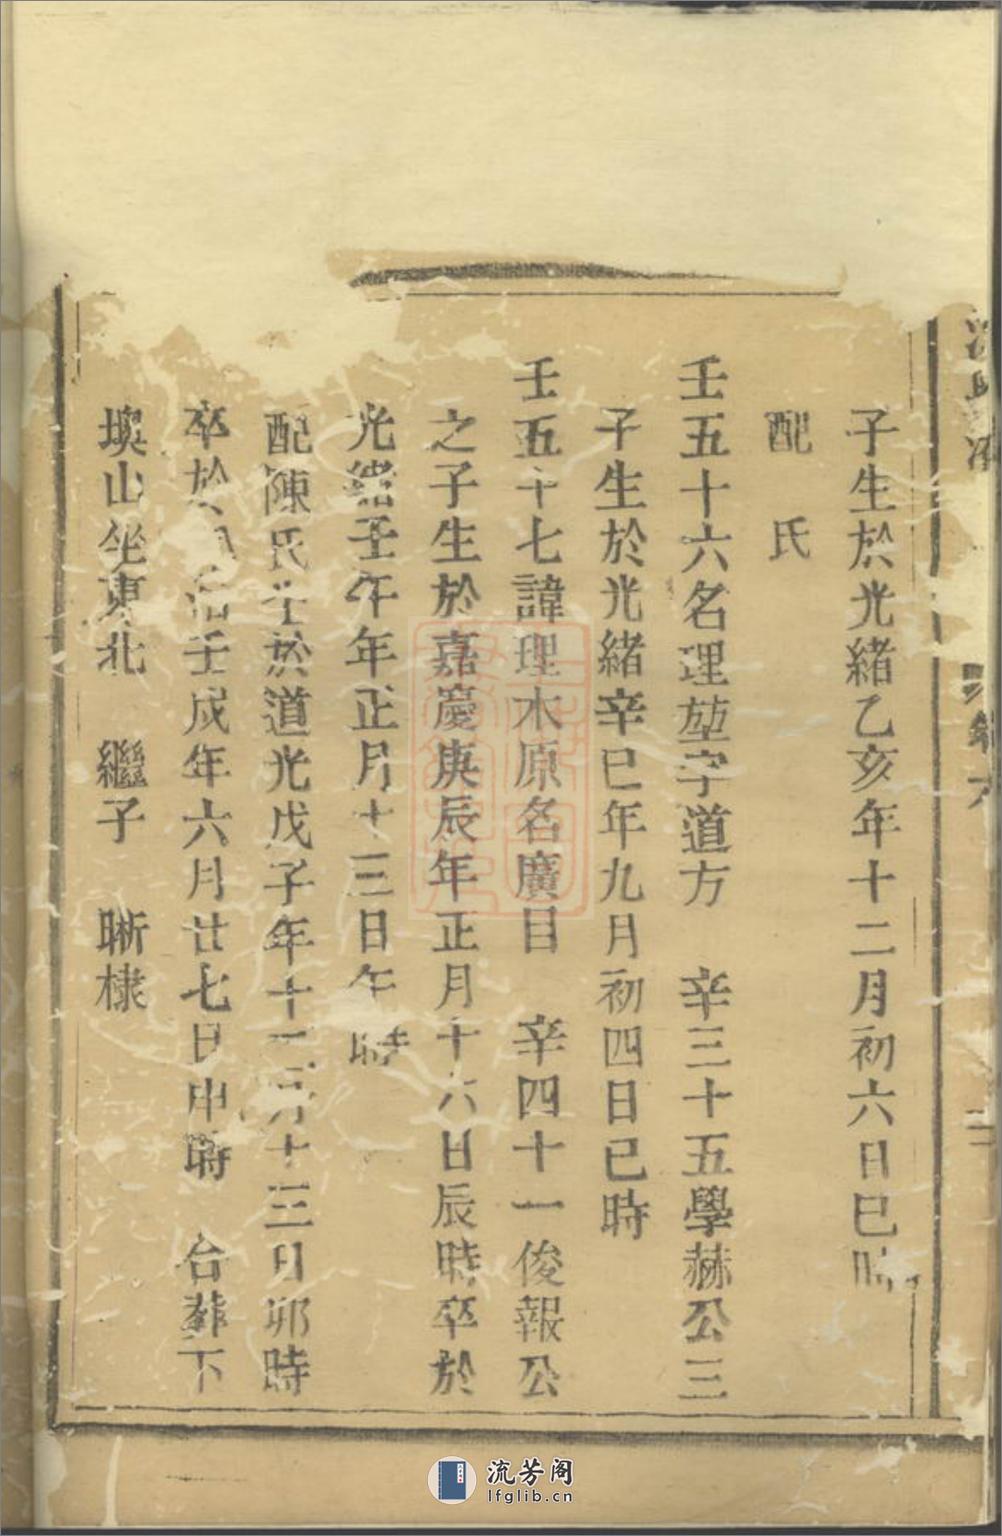 子生於光緒乙亥年十二月初六日巳時
配　氏
壬五十六名理堃字道方　辛三十五學赫公三
子生於光緒辛巳年九月初四日巳時
壬五十七諱理木原名廣目　辛四十一俊報公
之子生於嘉慶庚辰年正月十六日辰時卒於
光緒壬午年正月十三日午時
配陳氏生於道光戊子年十二月十三日卯時
卒於　治壬戌年六月廿七日申時　合葬下
墺山坐東北　繼子　晰棣
流芳阁
lfglib.cn